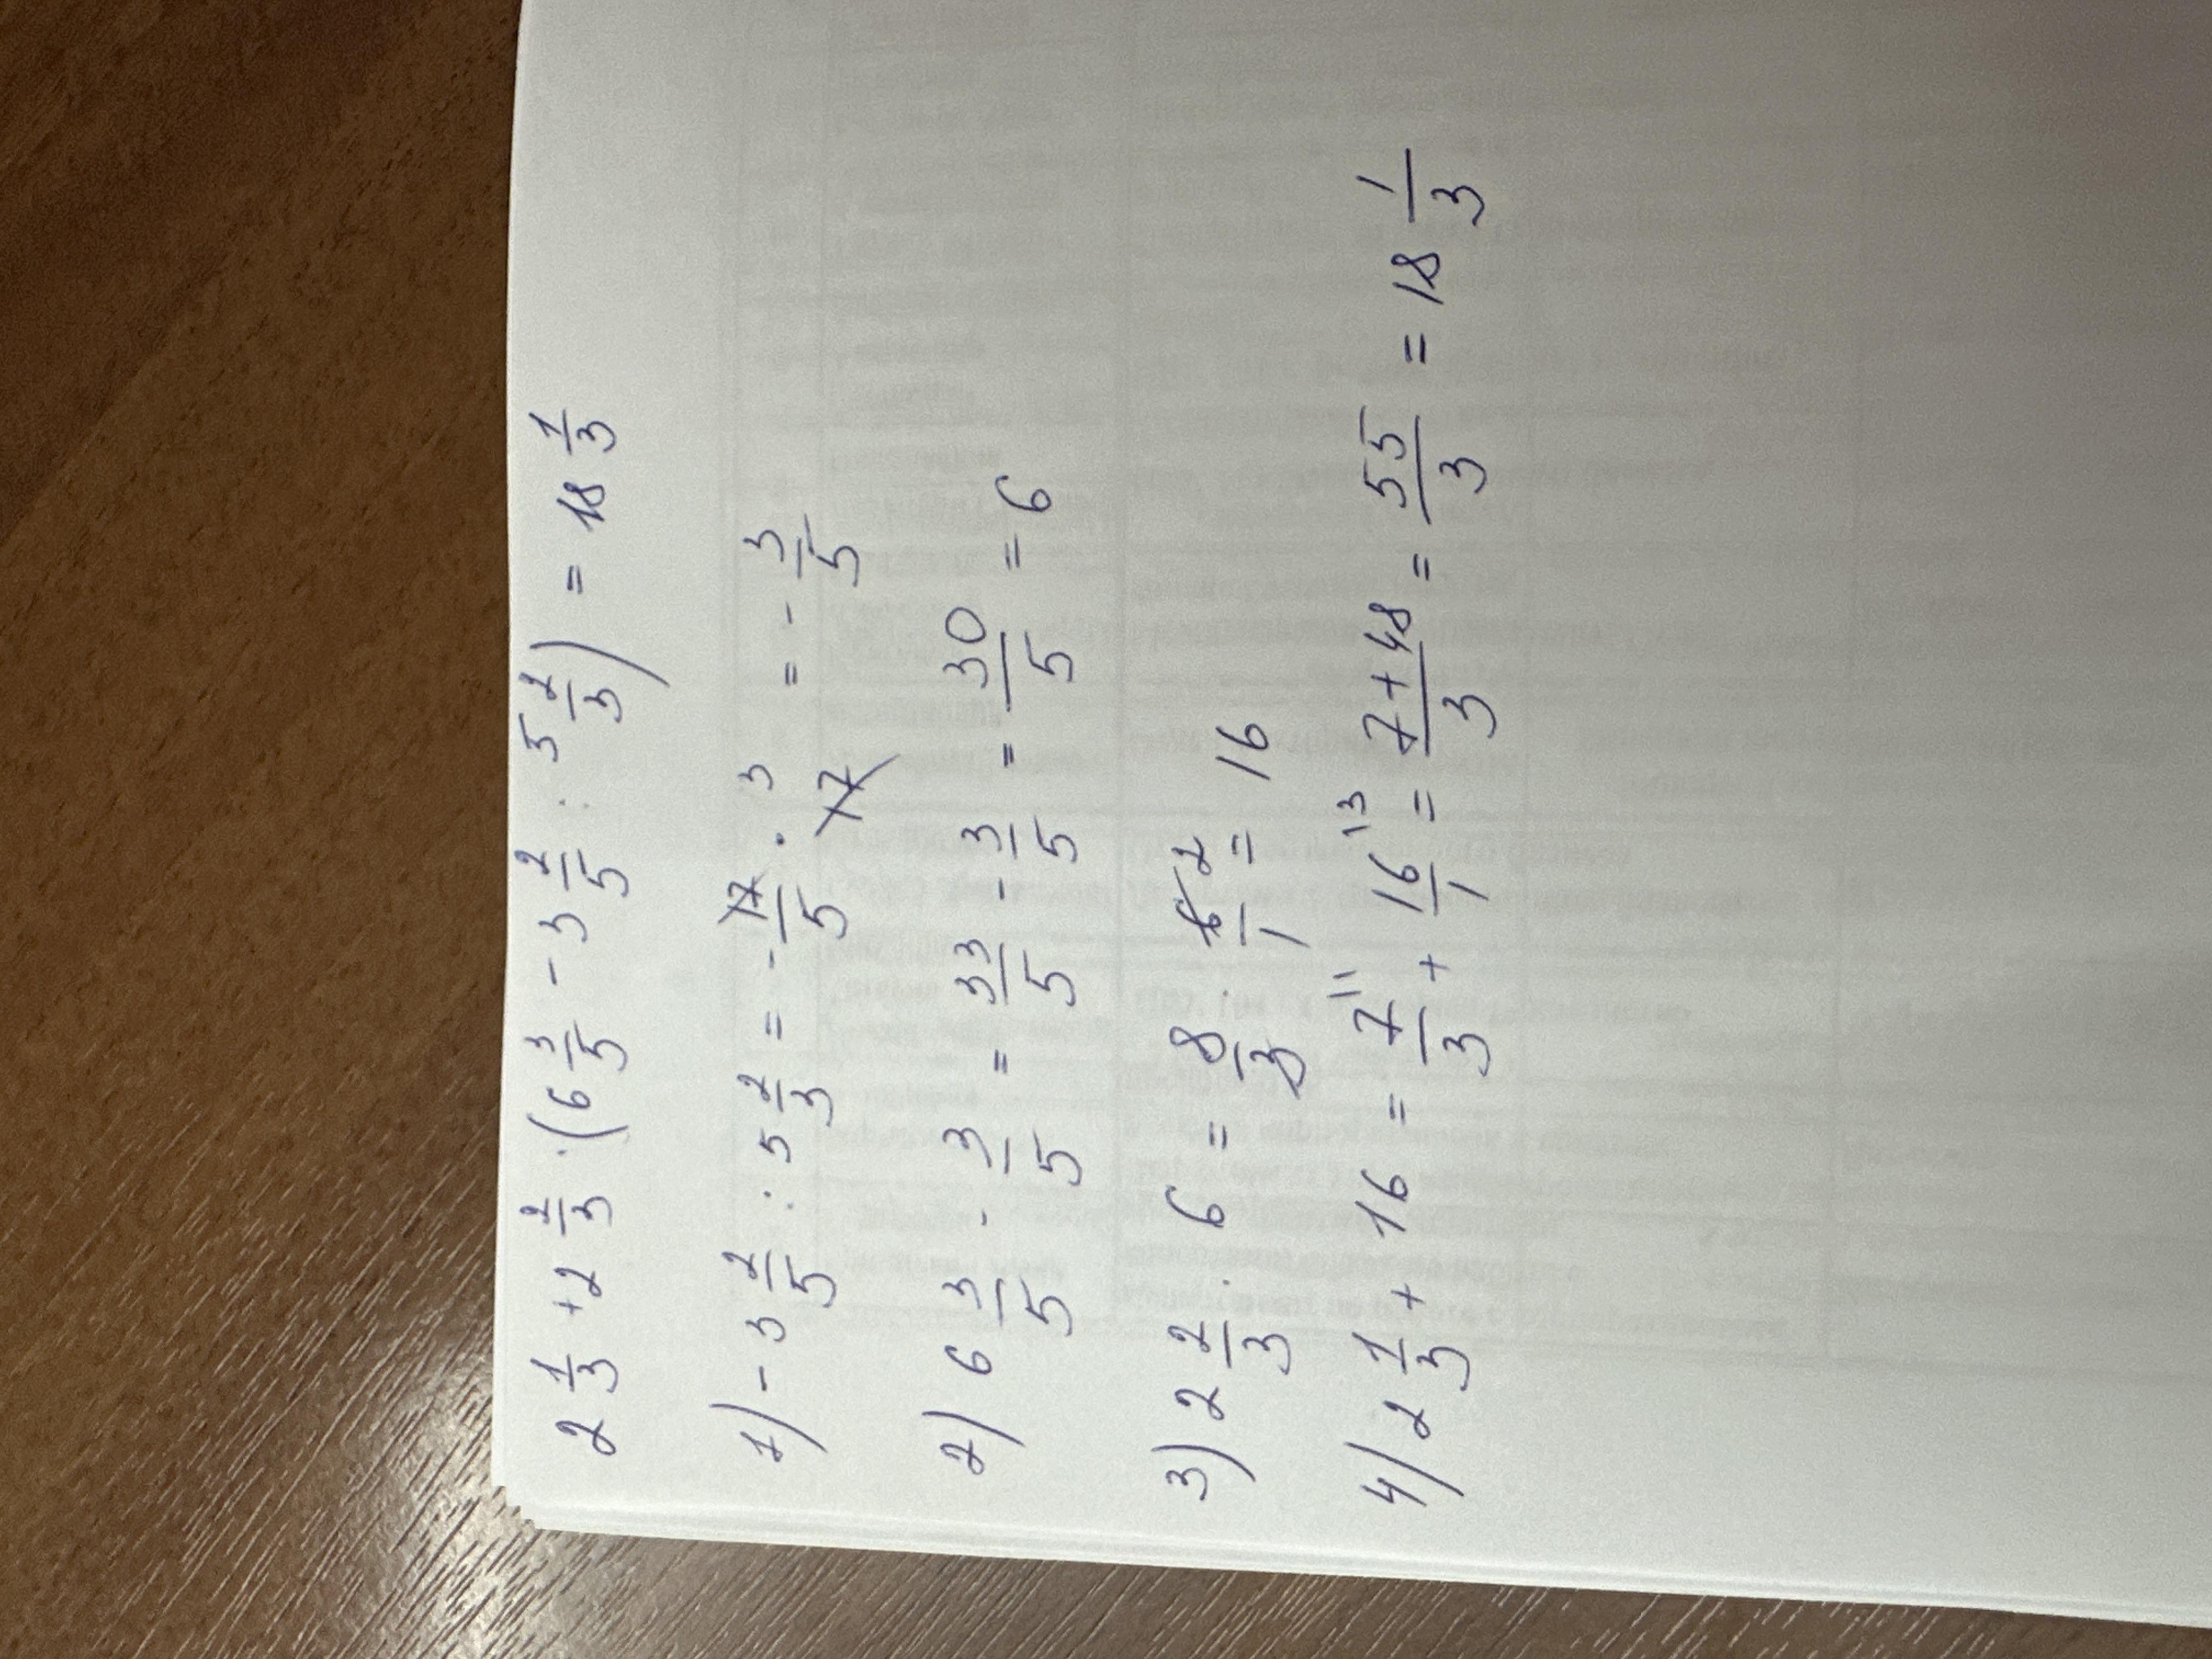 2 1/3 + 2 2/3 · (6 3/5 - 3 2/5 : 5 2/3) = 18 1/3
1) - 3 2/5 : 5 2/3 = - 17/5 · 3/17 = - 3/5
2) 6 3/5 - 3/5 = 33/5 - 3/5 = 30/5 = 6
3) 2 2/3 · 6 = 8/3 · 6/1 2 = 16
4) 2 1/3 + 16 = 7/3 11 + 16/1 13 = 7+48/3 = 55/3 = 18 1/3